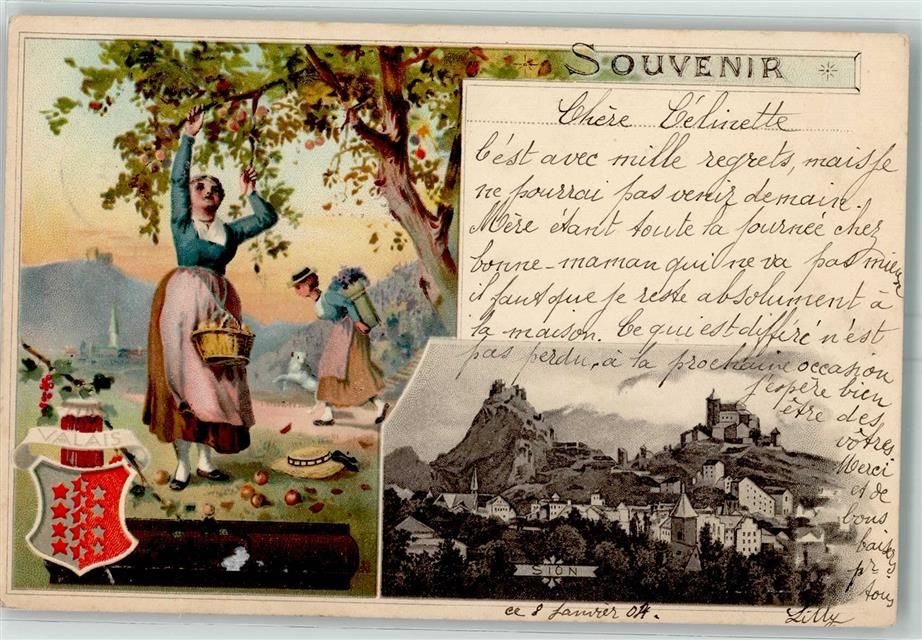 SOUVENIR
Chère Célinette
C'est avec mille regrets, mais je
ne pourrai pas venir demain.
Mère étant toute la journée chez
bonne-maman qui ne va pas mieux
il faut que je reste absolument à
la maison. Ce qui est différé n'est
pas perdu, à la prochaine occasion
j'espère bien
être des
vôtres.
Merci
et de
bons
baisers
pr
tous
VALAIS
SION
ce 8 Janvier 04.
Lilly